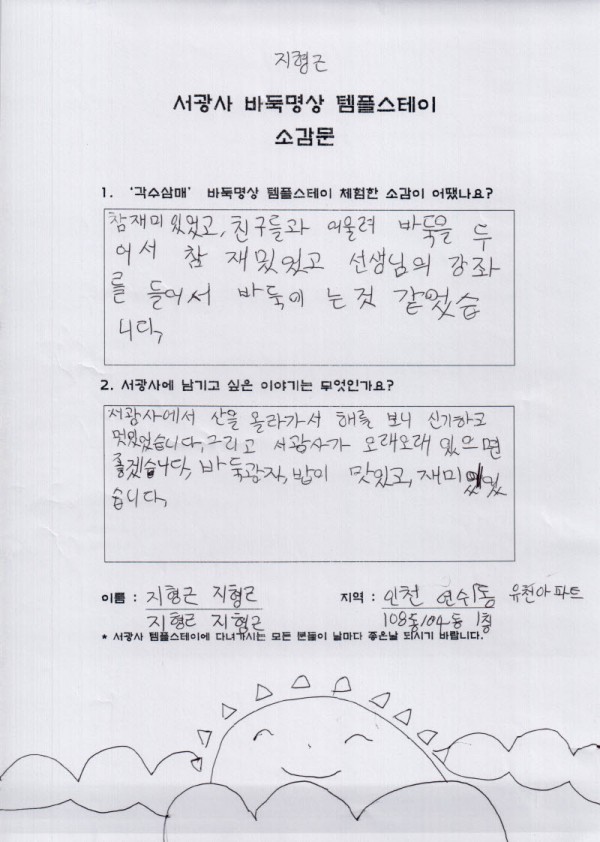 지형근
서광사 바둑명상 템플스테이
소감문
1. '각수삼매' 바둑명상 템플스테이 체험한 소감이 어땠나요?
참재미있었고, 친구들과 어울려 바둑을 두
어서 참 재밌있고 선생님의 강좌
를 들어서 바둑이 는것 같았습
니다,
2. 서광사에 남기고 싶은 이야기는 무엇인가요?
서광사에서 산을 올라가서 해를 보니 신기하고
멋있었습니다, 그리고 서광사가 오래오래 있으면
좋겠습니다, 바둑광자, 밥이 맛있고, 재미있었
습니다,
이름 : 지형근 지형근 지역 : 인천 연수1동 유천아파트
지형근 지형근 108동104동 1층
* 서광사 템플스테이에 다녀가시는 모든 분들이 날마다 좋은날 되시기 바랍니다.